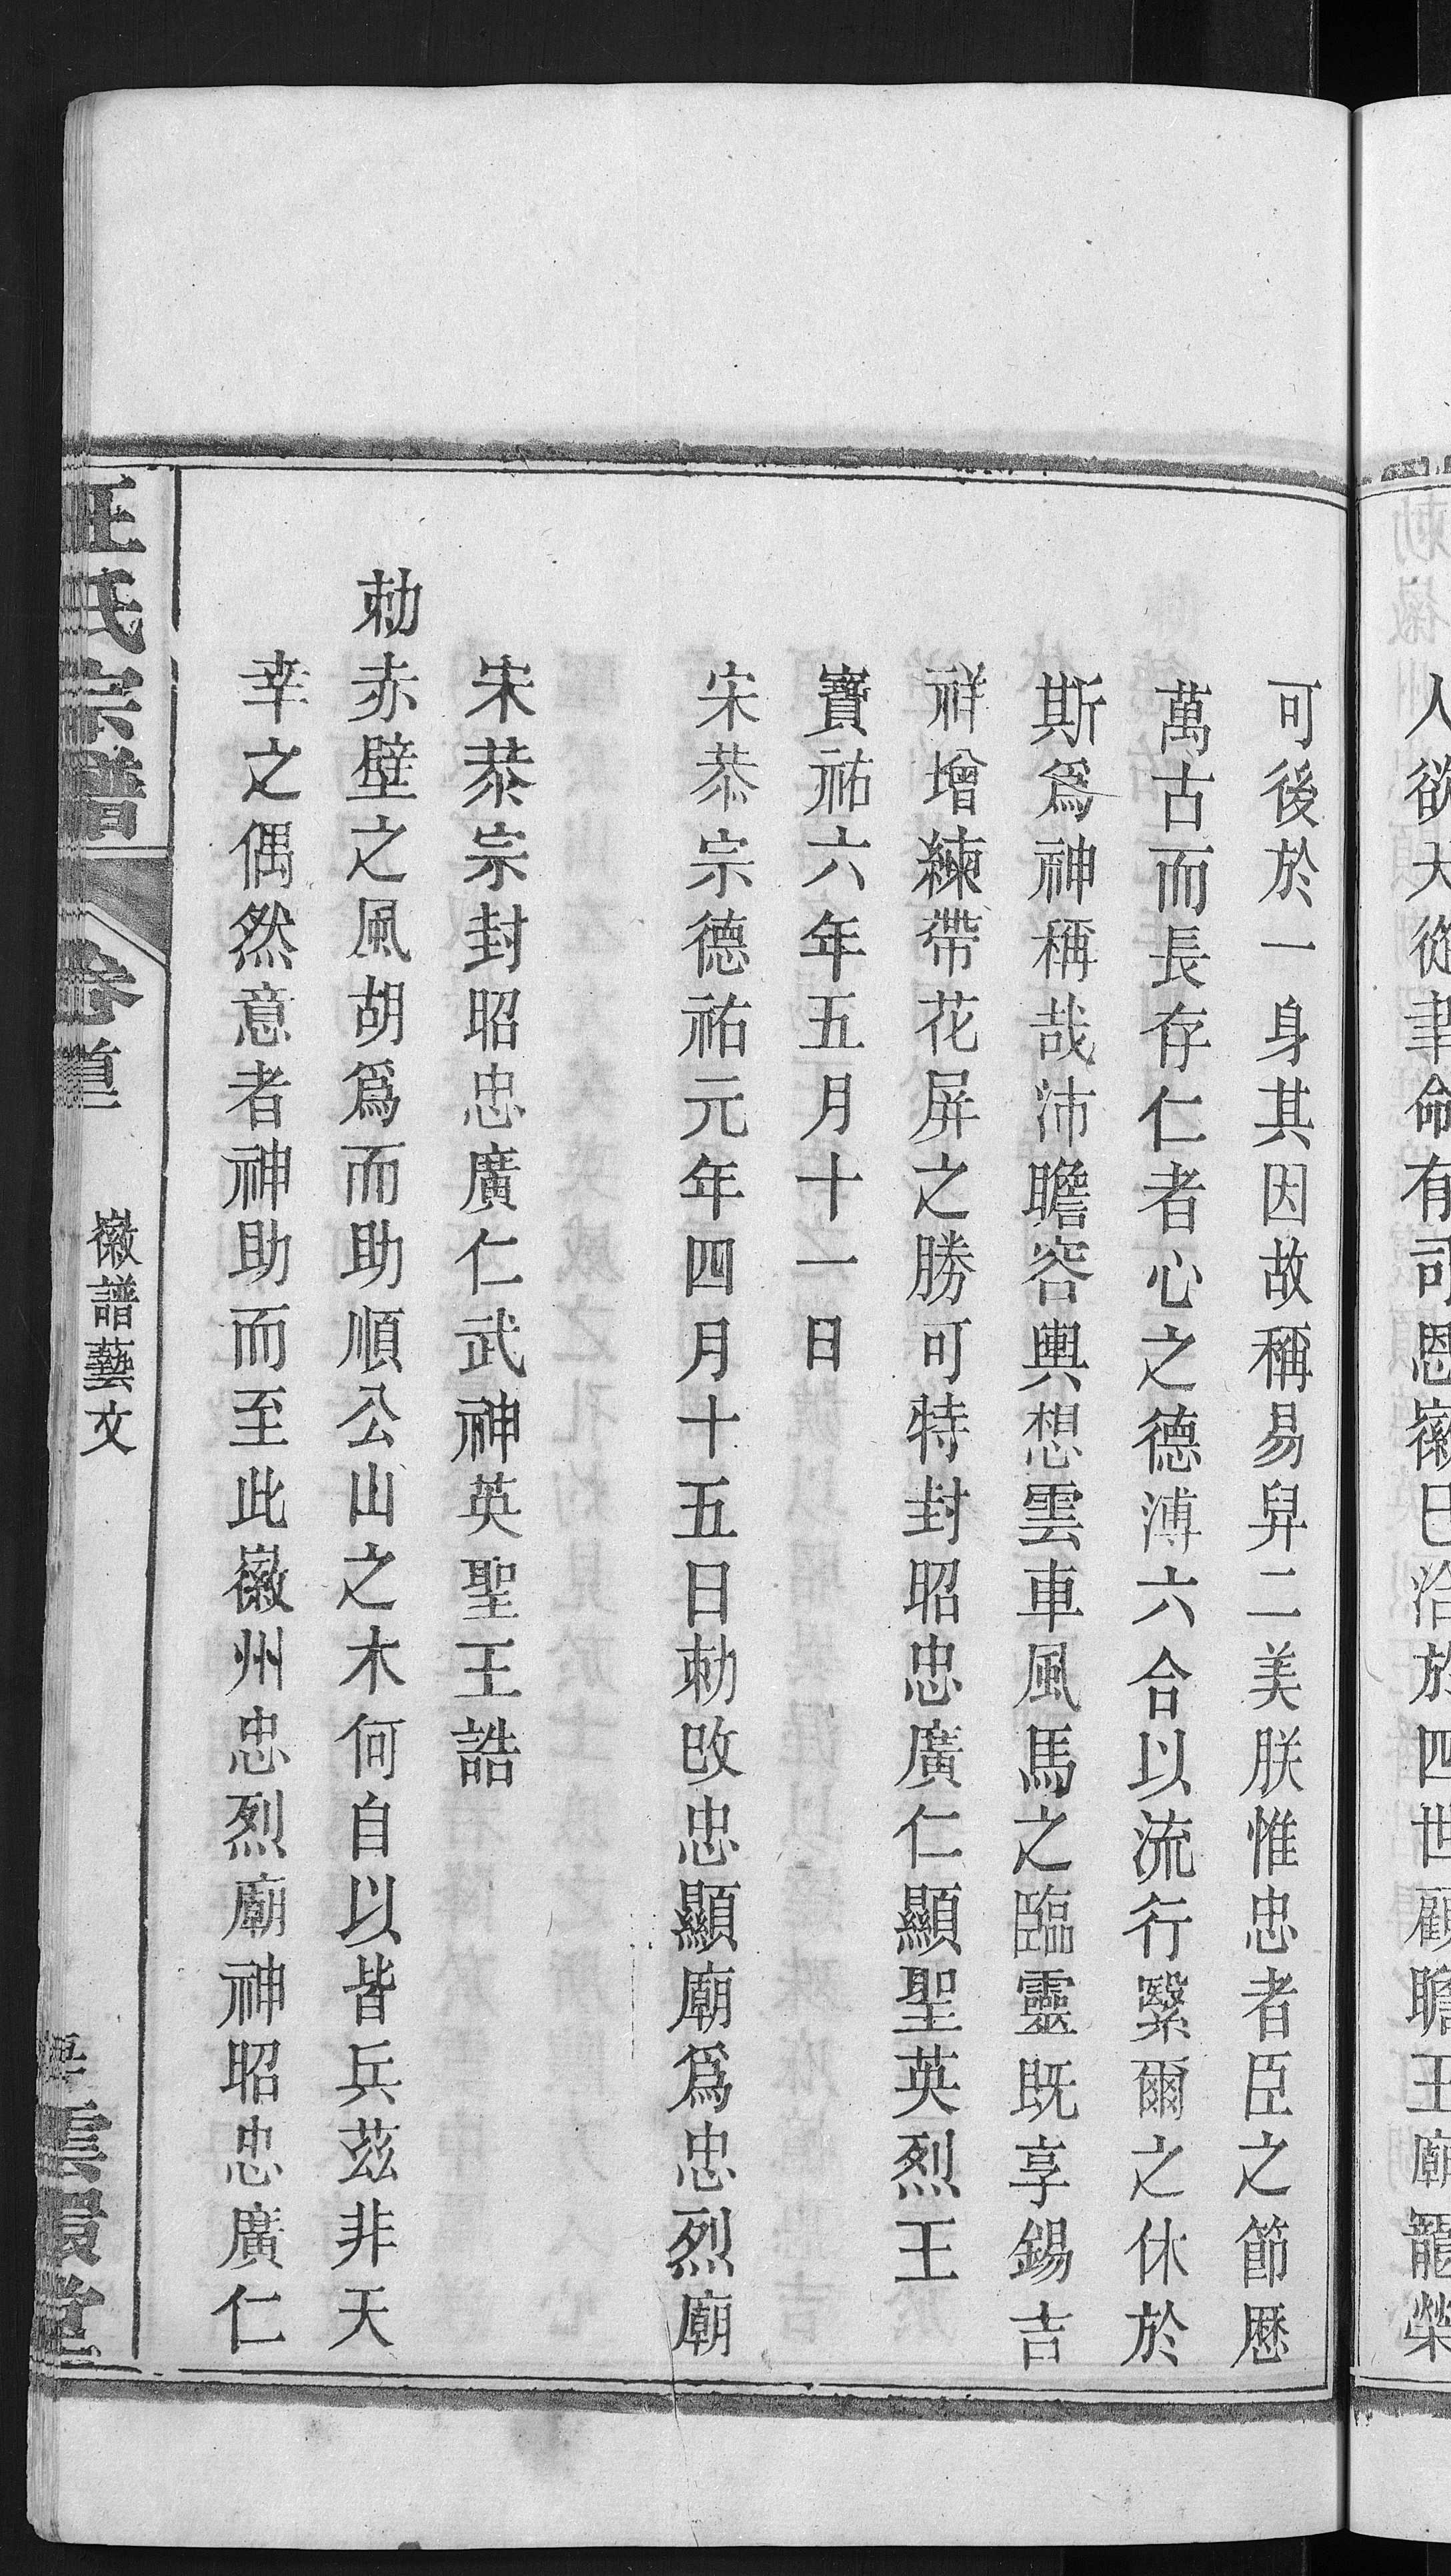 人欲天從聿命有司恩徽已洽於四世顧瞻王廟寵榮
可後於一身其因故稱易舁二美朕惟忠者臣之節歷
萬古而長存仁者心之德溥六合以流行繄爾之休於
斯爲神稱哉沛瞻容輿想雲車風馬之臨靈既享錫吉
祥增練帶花屏之勝可特封昭忠廣仁顯聖英烈王
寶祐六年五月十一日
宋恭宗德祐元年四月十五日勑改忠顯廟爲忠烈廟
宋恭宗封昭忠廣仁武神英聖王誥
勑赤壁之風胡爲而助順公山之木何自以皆兵茲非天
幸之偶然意者神助而至此徽州忠烈廟神昭忠廣仁
汪氏宗譜 卷首 徽譜藝文 雲環堂